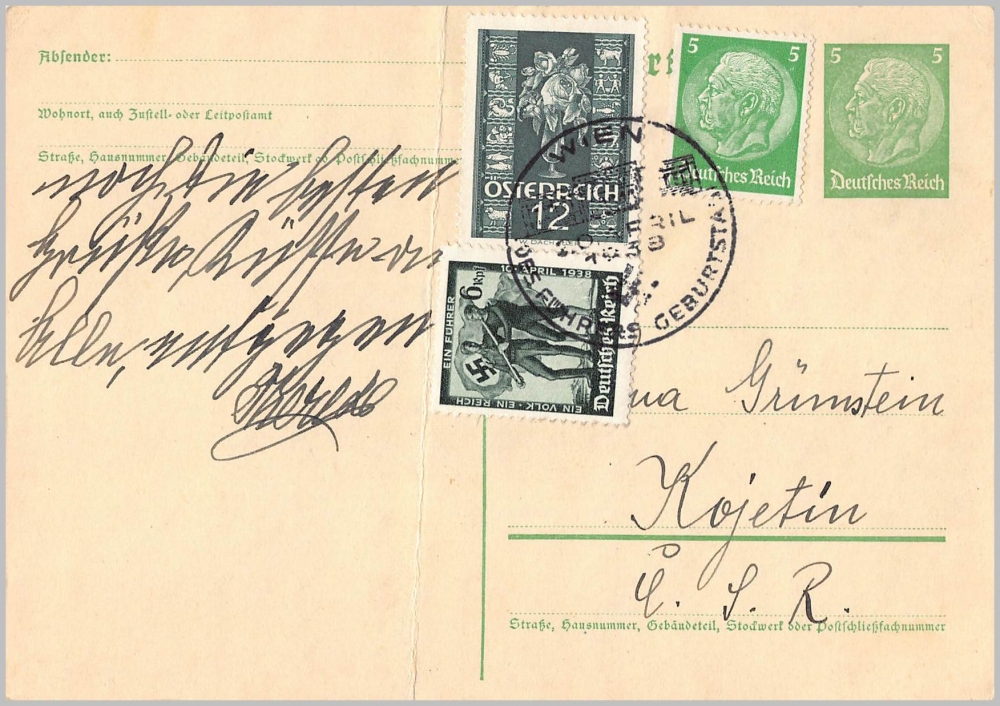 Absender:
Wohnort, auch Zustell- oder Leitpostamt
Straße, Hausnummer, Gebäudeteil, Stockwerk od. Postschließfachnummer
noch die besten
Grüße, Küsse an
alle, entgegen
ÖSTERREICH
12
5 5
Deutsches Reich
5 5
Deutsches Reich
WIEN
APRIL
DES FÜHRERS GEBURTSTAG
10. APRIL 1938
6 Rpf
EIN FÜHRER
EIN VOLK · EIN REICH
Deutsches Reich
Grünstein
Kojetín
Č. S. R.
Straße, Hausnummer, Gebäudeteil, Stockwerk oder Postschließfachnummer